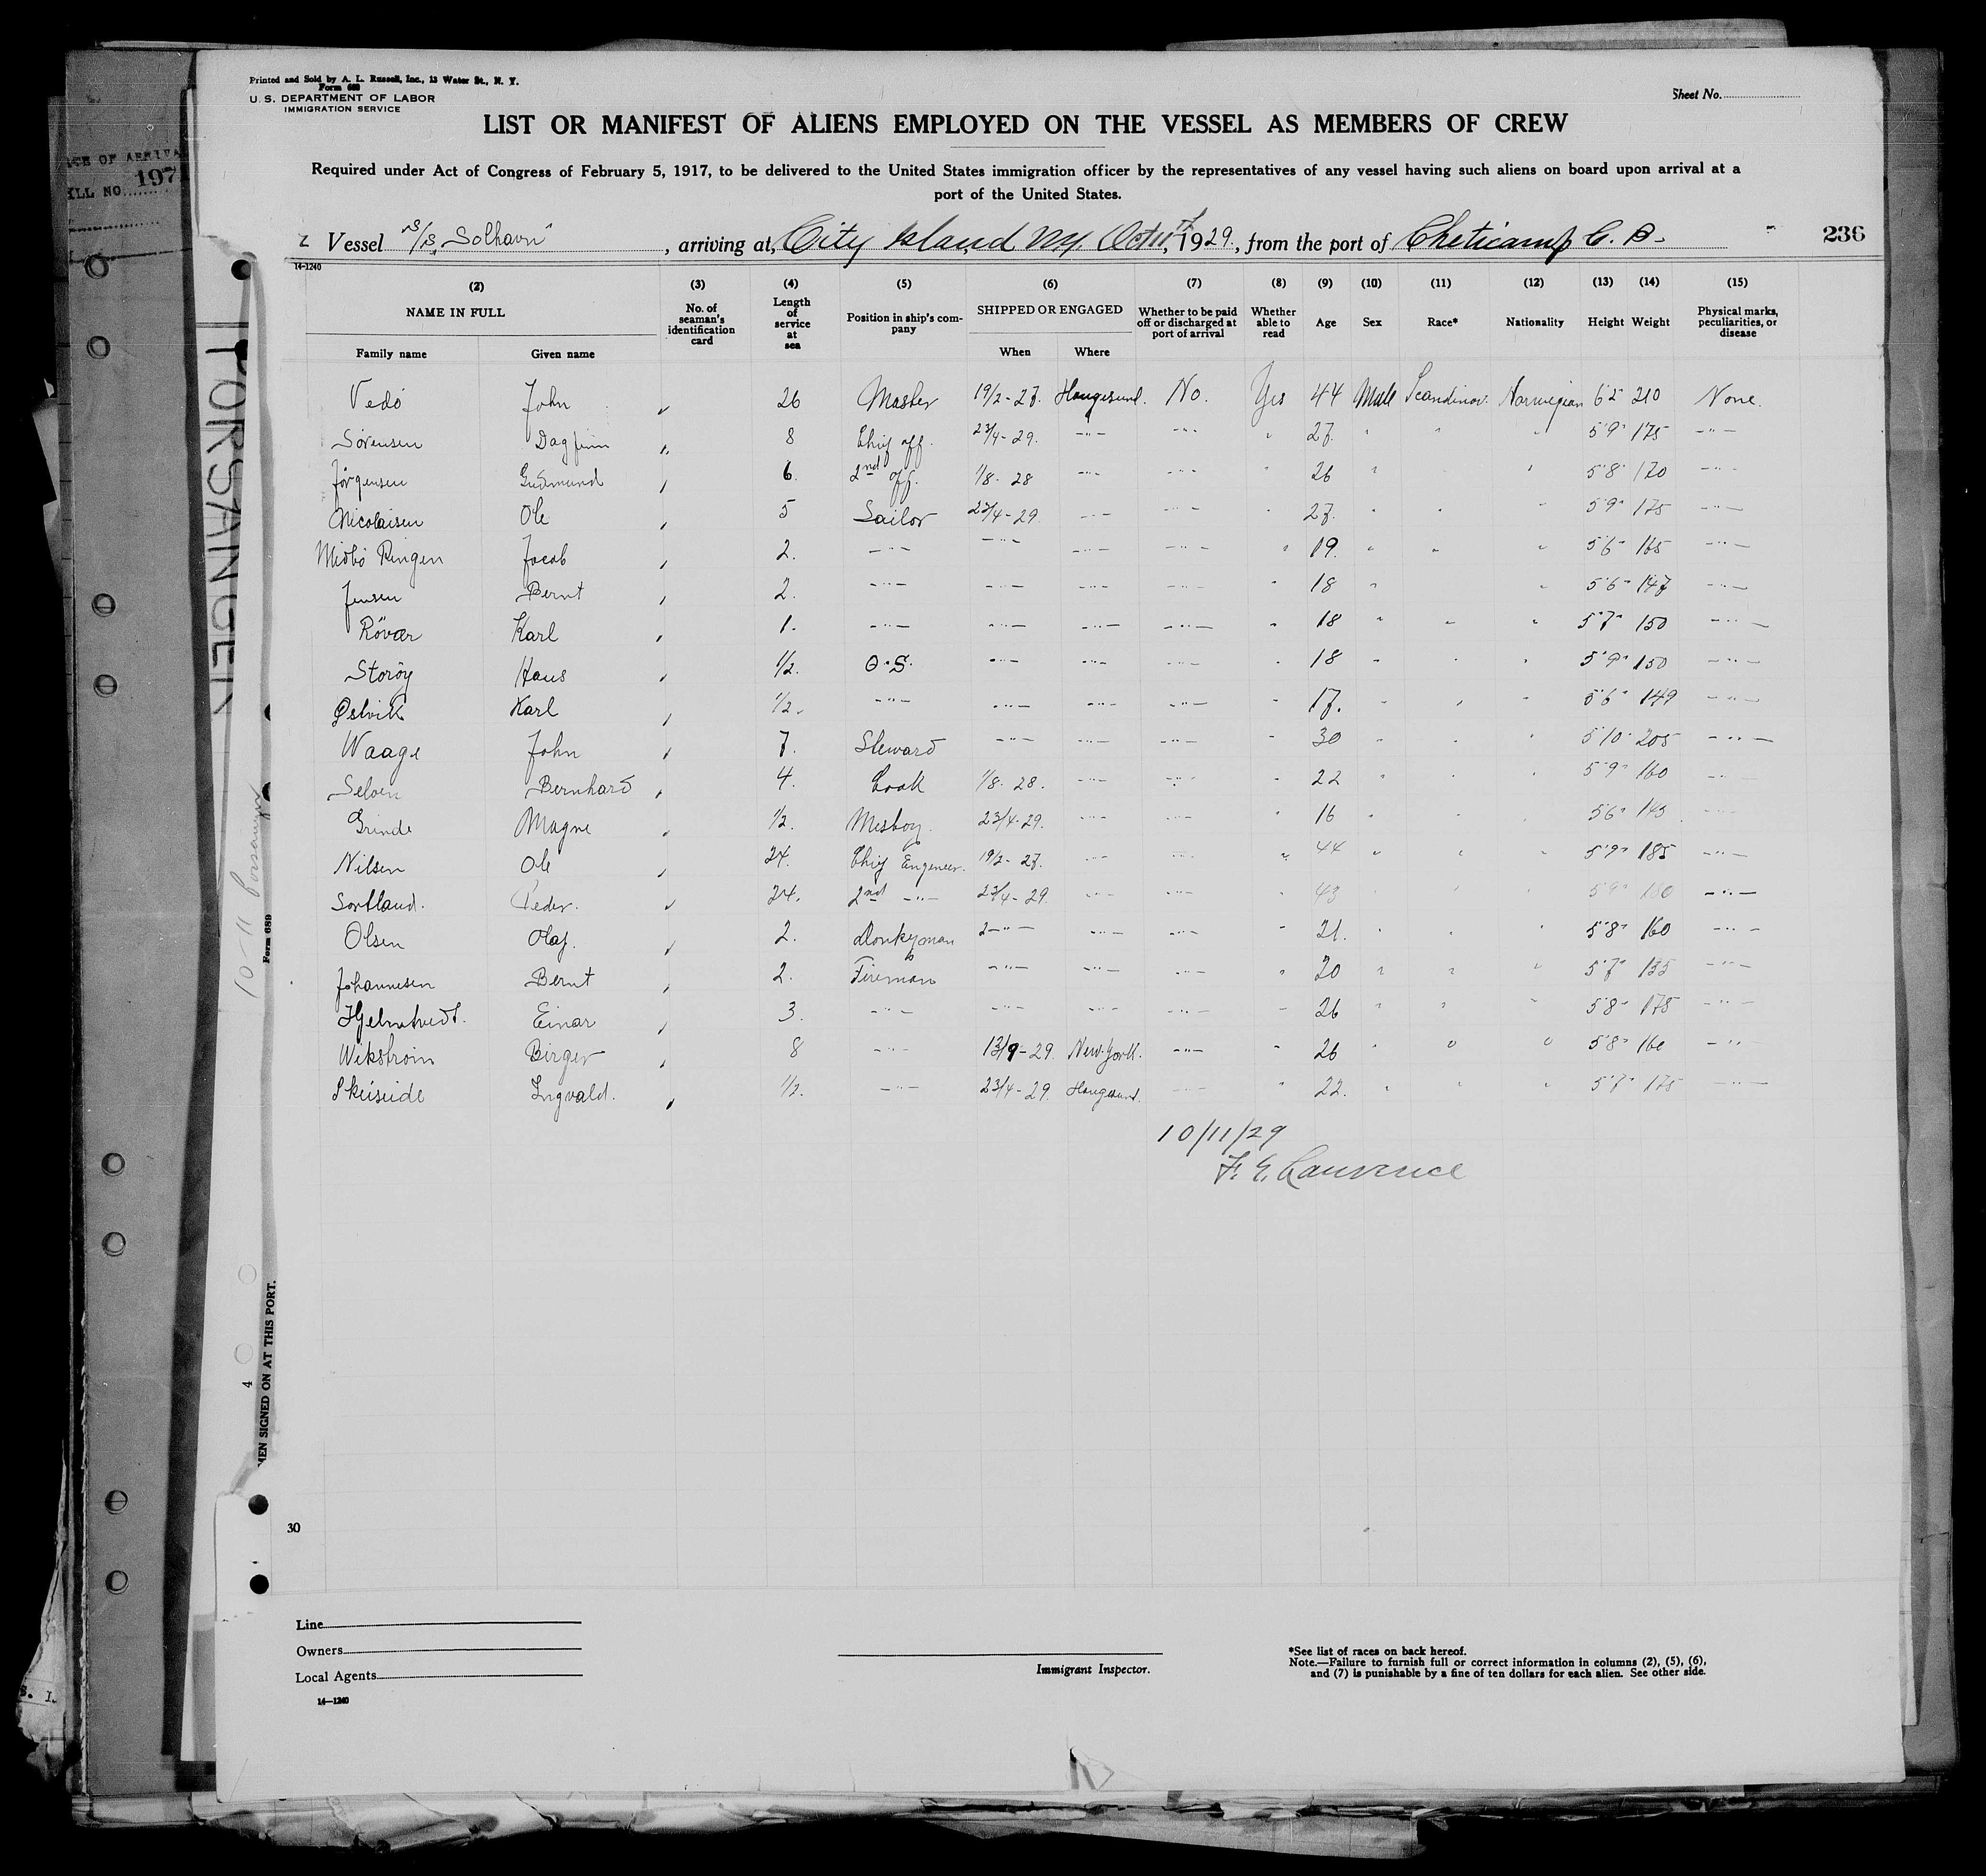 Printed and Sold by A. L. Russell, Inc., 13 Water St., N. Y.
Form 689
U. S. DEPARTMENT OF LABOR
IMMIGRATION SERVICE
Sheet No.
LIST OR MANIFEST OF ALIENS EMPLOYED ON THE VESSEL AS MEMBERS OF CREW
Required under Act of Congress of February 5, 1917, to be delivered to the United States immigration officer by the representatives of any vessel having such aliens on board upon arrival at a
port of the United States.
Vessel S/S, Solhavn, arriving at, City Island NY. Oct 11th, 1929., from the port of Cheticamp C. B. 236
14-1240
(2) (3) (4) (5) (6) (7) (8) (9) (10) (11) (12) (13) (14) (15)
NAME IN FULL No. of seaman's identification card Length of service at sea Position in ship's company SHIPPED OR ENGAGED Whether to be paid off or discharged at port of arrival Whether able to read Age Sex Race* Nationality Height Weight Physical marks, peculiarities, or disease
Family name Given name When Where
Vedö John 26 Master 19/2-27. Haugesund. No. Yes 44 Male Scandinav. Norwegian 6'2" 210 None.
Sörensen Dagfinn 8 Chief off. 23/4-29. -"- -"- " 27. " " 5'9" 175 -"-
Jörgensen Gudmund 6. 2nd off. 1/8-28 -"- -"- " 26 " " 5'8" 170 -"-
Nicolaisen Ole 5 Sailor 23/4-29. -"- -"- " 27. " " " 5'9" 175 -"-
Midbö Ringen Jacob 2. -"- -"- -"- -"- " 19. " " " 5'6" 165 -"-
Jensen Bernt 2. -"- -"- -"- -"- " 18 " " 5'6" 147 -"-
Rövær Karl 1. -"- -"- -"- -"- " 18 " " " 5'7" 150 -"-
Storöy Hans 1/2. O.S. -"- -"- -"- " 18 " " " 5'9" 150 -"-
Østvik Karl 1/2. -"- -"- -"- -"- " 17. " " " 5'6" 149 -"-
Waage John 7. Steward -"- -"- -"- " 30 " " " 5'10" 205 -"-
Bernhard 4. Cook 1/8-28. -"- -"- " 22 " " " 5'9" 160 -"-
Grinde Magne 1/2. Mesboy. 23/4-29. -"- -"- " 16 " " " 5'6" 145 -"-
Nilsen Ole 24. Chief Engineer. 19/2-27. -"- -"- " 44 " " " 5'9" 185 -"-
Sortland. Peder. 24. 2nd -"- 23/4-29. -"- -"- " 43 " " " 5'9" 180 -"-
Olsen Olaf. 2. Donkeyman -"- -"- -"- " 21. " " " 5'8" 160 -"-
Johannesen Bernt 2. Fireman -"- -"- -"- " 20 " " " 5'7" 135 -"-
Hjelmtvedt. Einar 3. -"- -"- -"- -"- " 26 " " " 5'8" 178 -"-
Wikström Birger 8 -"- 13/9-29. New-York. -"- " 26 " " " 5'8" 160 -"-
Ingvald. 1/2. -"- 23/4-29. Haugesund. -"- " 22. " " " 5'7" 175 -"-
10/11/29
F. E. Lawrence
30
Line
Owners
Local Agents
14—1240
Immigrant Inspector.
*See list of races on back hereof.
Note.—Failure to furnish full or correct information in columns (2), (5), (6),
and (7) is punishable by a fine of ten dollars for each alien. See other side.
PORSANGER
10-11 Porsanger
Form 689
MEN SIGNED ON AT THIS PORT.
4
OF ARRIVAL
NO. 1971